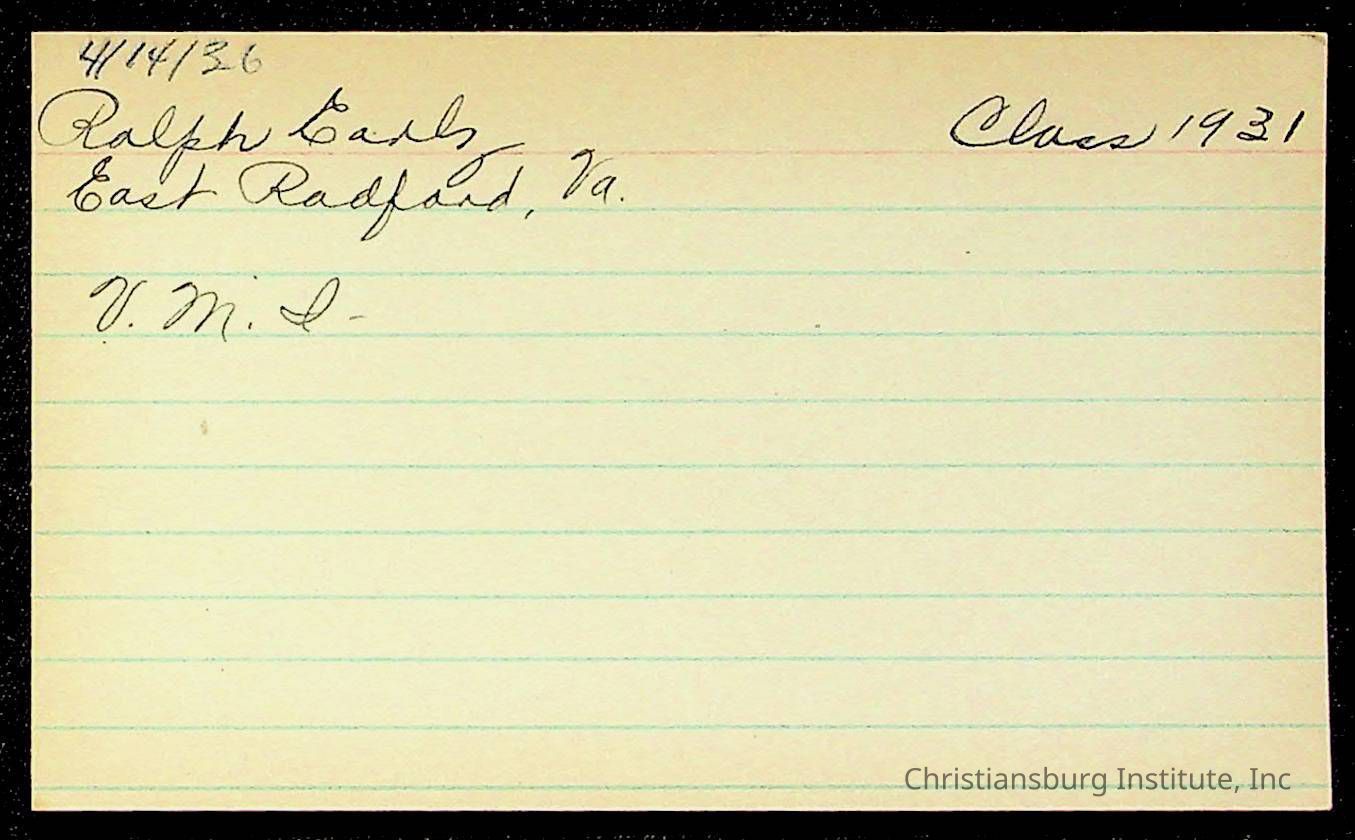 4/14/36
Ralph Early Class 1931
East Radford, Va.
V. M. I-
Christiansburg Institute, Inc